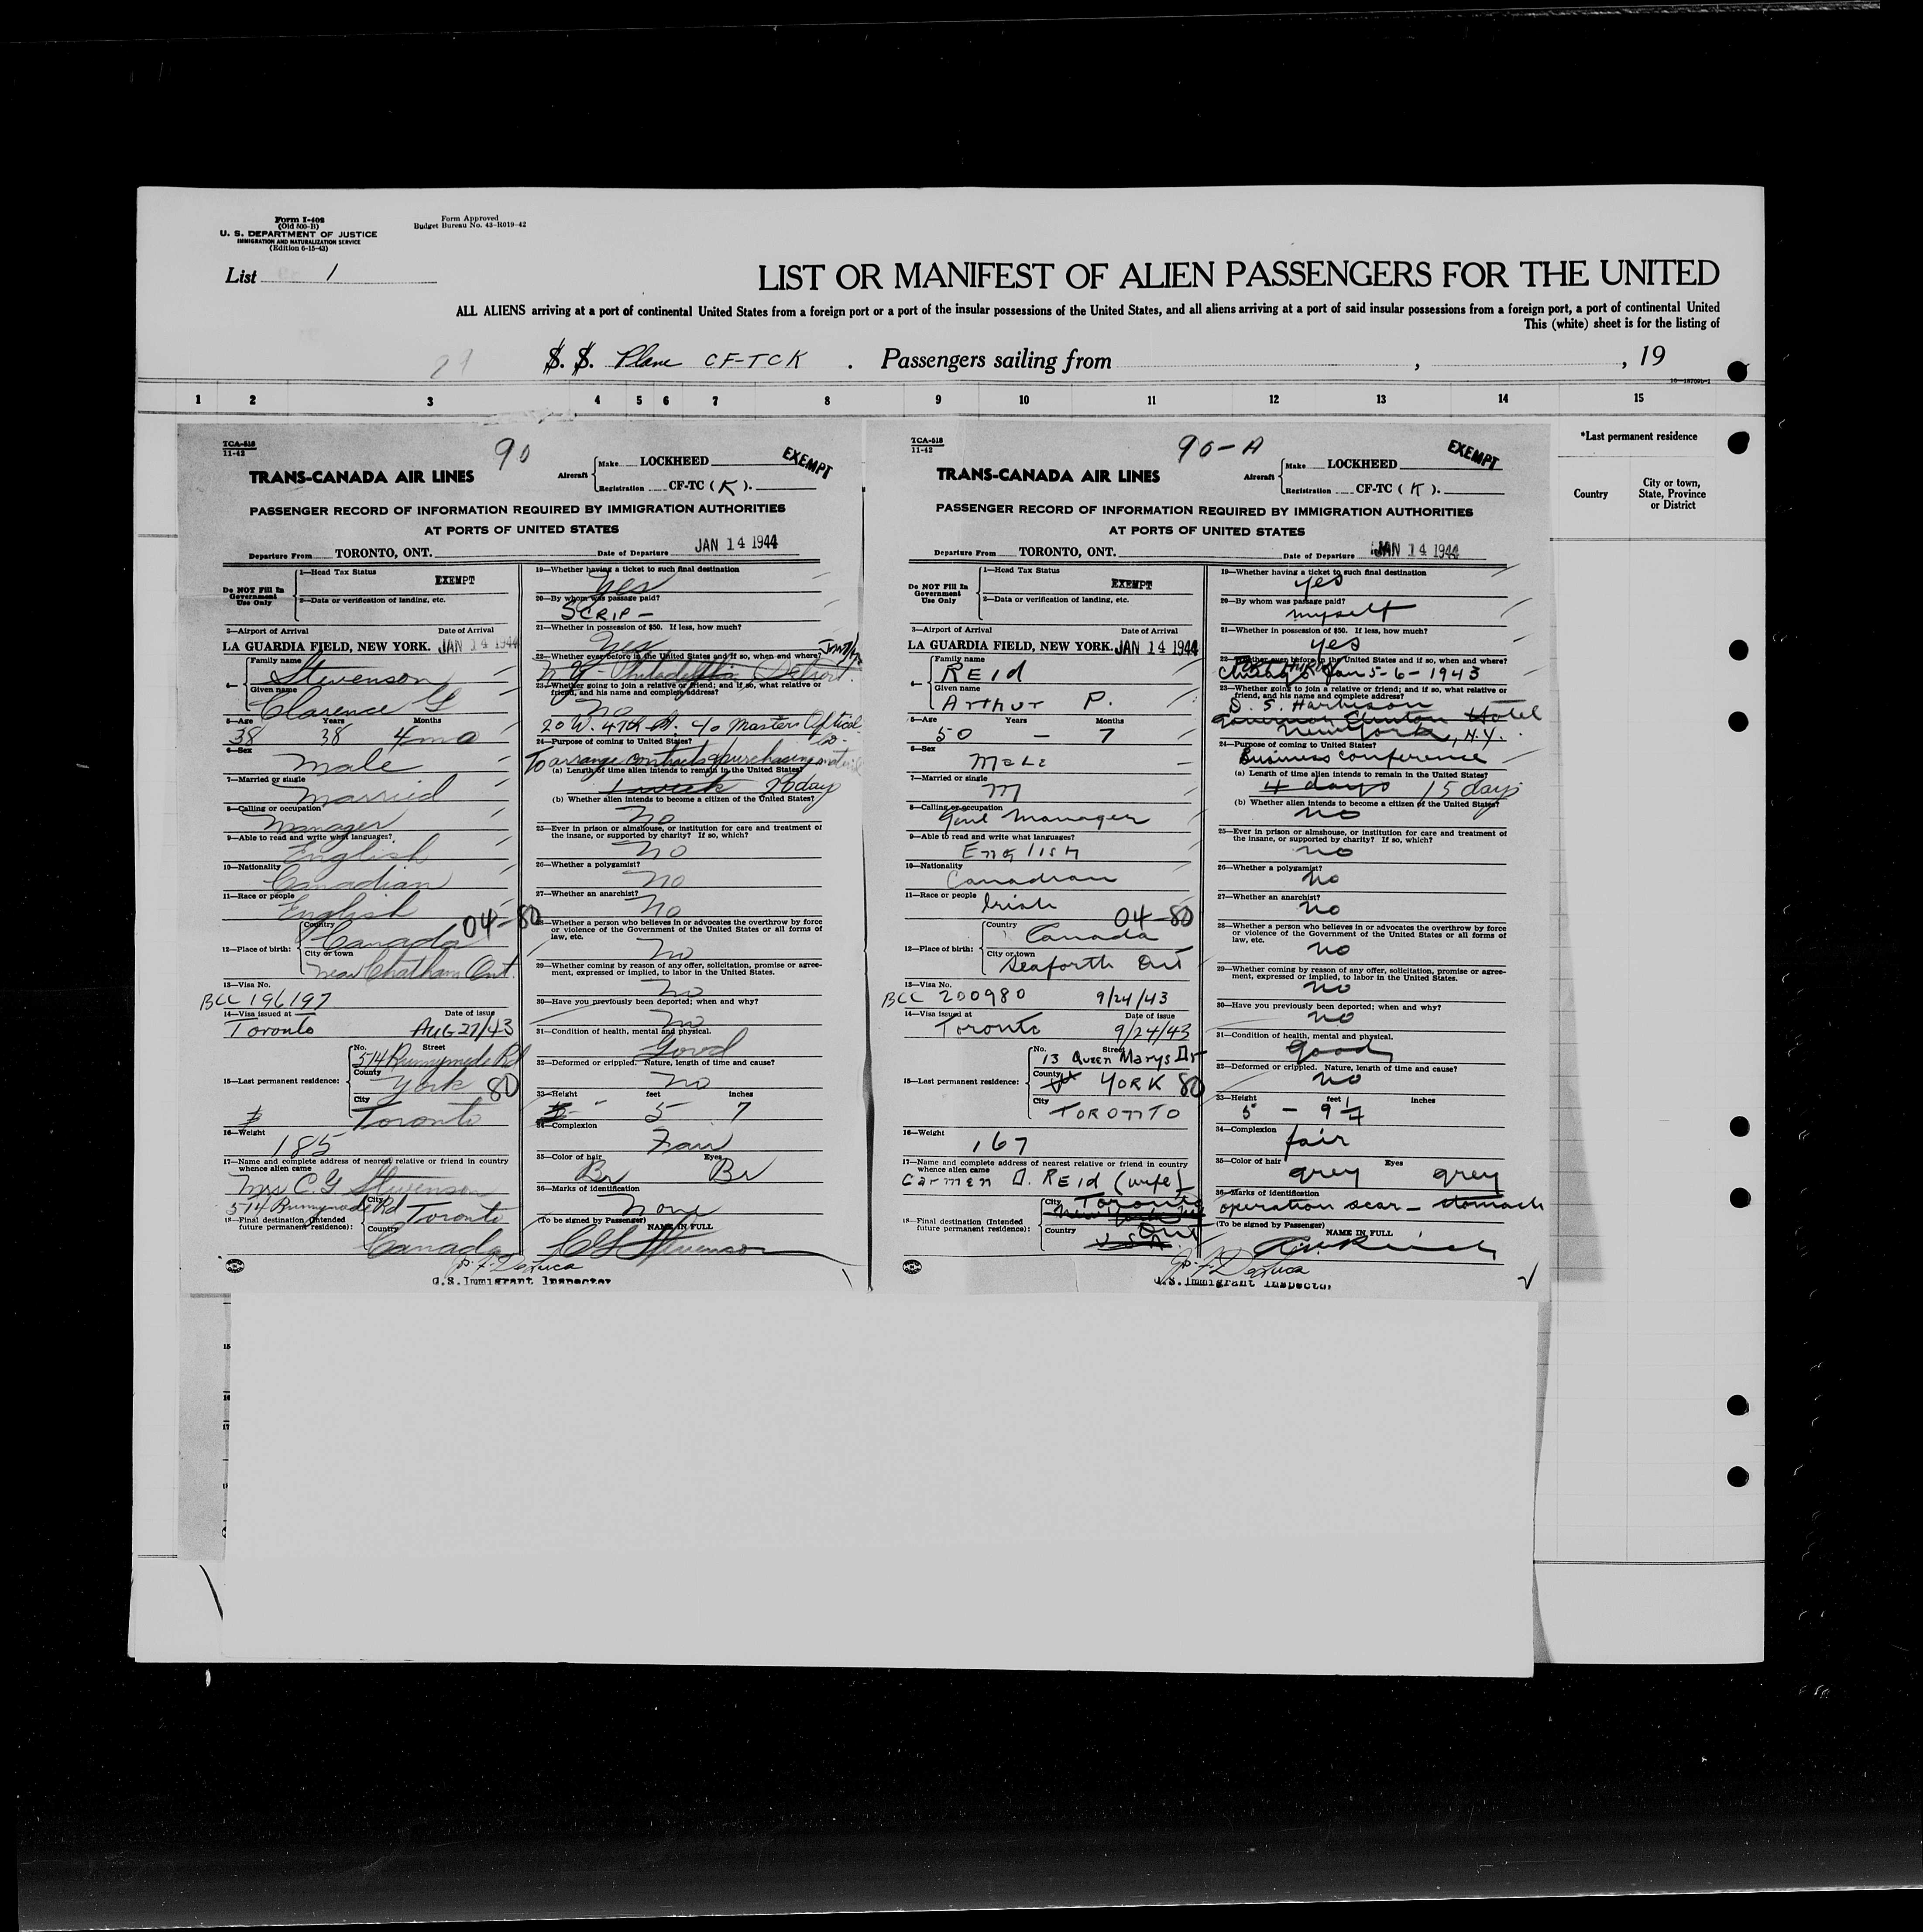 Form I-402
(Old 500-B)
U. S. DEPARTMENT OF JUSTICE
IMMIGRATION AND NATURALIZATION SERVICE
(Edition 6-15-43)
Form Approved
Budget Bureau No. 43-R019-42
List 1
LIST OR MANIFEST OF ALIEN PASSENGERS FOR THE UNITED
ALL ALIENS arriving at a port of continental United States from a foreign port or a port of the insular possessions of the United States, and all aliens arriving at a port of said insular possessions from a foreign port, a port of continental United
This (white) sheet is for the listing of
S. S. Plane CF-TCK . Passengers sailing from , , 19
1 2 3 4 5 6 7 8 9 10 11 12 13 14 15
*Last permanent residence
Country
City or town,
State, Province
or District
TCA-518
11-42
90
TRANS-CANADA AIR LINES
Aircraft
Make LOCKHEED
Registration CF-TC (K).
EXEMPT
PASSENGER RECORD OF INFORMATION REQUIRED BY IMMIGRATION AUTHORITIES
AT PORTS OF UNITED STATES
Departure From TORONTO, ONT.
Date of Departure JAN 14 1944
Do NOT Fill In
Government
Use Only
1—Head Tax Status
EXEMPT
2—Data or verification of landing, etc.
3—Airport of Arrival Date of Arrival
LA GUARDIA FIELD, NEW YORK. JAN 14 1944
4—
Family name
Stevenson
Given name
Clarence G
5—Age Years Months
38 38 4 mo
6—Sex
Male
7—Married or single
Married
8—Calling or occupation
Manager
9—Able to read and write what languages?
English
10—Nationality
Canadian
11—Race or people
English
04-80
12—Place of birth:
Country
Canada
City or town
Near Chatham Ont.
13—Visa No.
BCC 196197
14—Visa issued at Date of issue
Toronto AUG 27/43
15—Last permanent residence:
No. Street
514 Runnymede Rd
County
York 80
City
Toronto
16—Weight
185
17—Name and complete address of nearest relative or friend in country
whence alien came
Mrs C. G Stevenson
514 Runnymede Rd
18—Final destination (Intended
future permanent residence):
City
Toronto
Country
Canada
19—Whether having a ticket to such final destination
Yes
20—By whom was passage paid?
SCRIP -
21—Whether in possession of $50. If less, how much?
Yes
22—Whether ever before in the United States and if so, when and where?
N Y - Philadelphia Detroit.
23—Whether going to join a relative or friend; and if so, what relative or
friend, and his name and complete address?
No
20 W. 47th St. c/o Masters Optical Co.
24—Purpose of coming to United States?
To arrange contracts purchasing material
(a) Length of time alien intends to remain in the United States?
1 week 26 day
(b) Whether alien intends to become a citizen of the United States?
No
25—Ever in prison or almshouse, or institution for care and treatment of
the insane, or supported by charity? If so, which?
No
26—Whether a polygamist?
No
27—Whether an anarchist?
No
28—Whether a person who believes in or advocates the overthrow by force
or violence of the Government of the United States or all forms of
law, etc.
No
29—Whether coming by reason of any offer, solicitation, promise or agree-
ment, expressed or implied, to labor in the United States.
No
30—Have you previously been deported; when and why?
No
31—Condition of health, mental and physical.
Good
32—Deformed or crippled. Nature, length of time and cause?
No
33—Height feet inches
5 7
34—Complexion
Fair
35—Color of hair Eyes
Br Br
36—Marks of identification
None
(To be signed by Passenger) NAME IN FULL
C G Stevenson
J. F. DeLuca
U.S. Immigrant Inspector
TCA-518
11-42
90-A
TRANS-CANADA AIR LINES
Aircraft
Make LOCKHEED
Registration CF-TC (K).
EXEMPT
PASSENGER RECORD OF INFORMATION REQUIRED BY IMMIGRATION AUTHORITIES
AT PORTS OF UNITED STATES
Departure From TORONTO, ONT.
Date of Departure JAN 14 1944
Do NOT Fill In
Government
Use Only
1—Head Tax Status
EXEMPT
2—Data or verification of landing, etc.
3—Airport of Arrival Date of Arrival
LA GUARDIA FIELD, NEW YORK. JAN 14 1944
4—
Family name
REId
Given name
Arthur P.
5—Age Years Months
50 — 7
6—Sex
MaLE
7—Married or single
M
8—Calling or occupation
Genl Manager
9—Able to read and write what languages?
English
10—Nationality
Canadian
11—Race or people
Irish
04-80
12—Place of birth:
Country
Canada
City or town
Seaforth Ont
13—Visa No.
BCC 200980 9/24/43
14—Visa issued at Date of issue
Toronto 9/24/43
15—Last permanent residence:
No. Street
13 Queen Marys Dr
County
YORK 80
City
TORONTO
16—Weight
167
17—Name and complete address of nearest relative or friend in country
whence alien came
Carmen D. REId (wife)
18—Final destination (Intended
future permanent residence):
City
Toronto
New York
Country
Ont
USA
19—Whether having a ticket to such final destination
yes
20—By whom was passage paid?
myself
21—Whether in possession of $50. If less, how much?
yes
22—Whether ever before in the United States and if so, when and where?
Port Huron
Chicago Jan 5-6-1943
23—Whether going to join a relative or friend; and if so, what relative or
friend, and his name and complete address?
D. S. Harbison
Governor Clinton Hotel
New York, N.Y.
24—Purpose of coming to United States?
Business conference
(a) Length of time alien intends to remain in the United States?
4 days 15 days
(b) Whether alien intends to become a citizen of the United States?
no
25—Ever in prison or almshouse, or institution for care and treatment of
the insane, or supported by charity? If so, which?
no
26—Whether a polygamist?
no
27—Whether an anarchist?
no
28—Whether a person who believes in or advocates the overthrow by force
or violence of the Government of the United States or all forms of
law, etc.
no
29—Whether coming by reason of any offer, solicitation, promise or agree-
ment, expressed or implied, to labor in the United States.
no
30—Have you previously been deported; when and why?
no
31—Condition of health, mental and physical.
good
32—Deformed or crippled. Nature, length of time and cause?
no
33—Height feet inches
5 — 9 1/4
34—Complexion
fair
35—Color of hair Eyes
grey grey
36—Marks of identification
operation scar — stomach
(To be signed by Passenger) NAME IN FULL
J. F. DeLuca
U.S. Immigrant Inspector